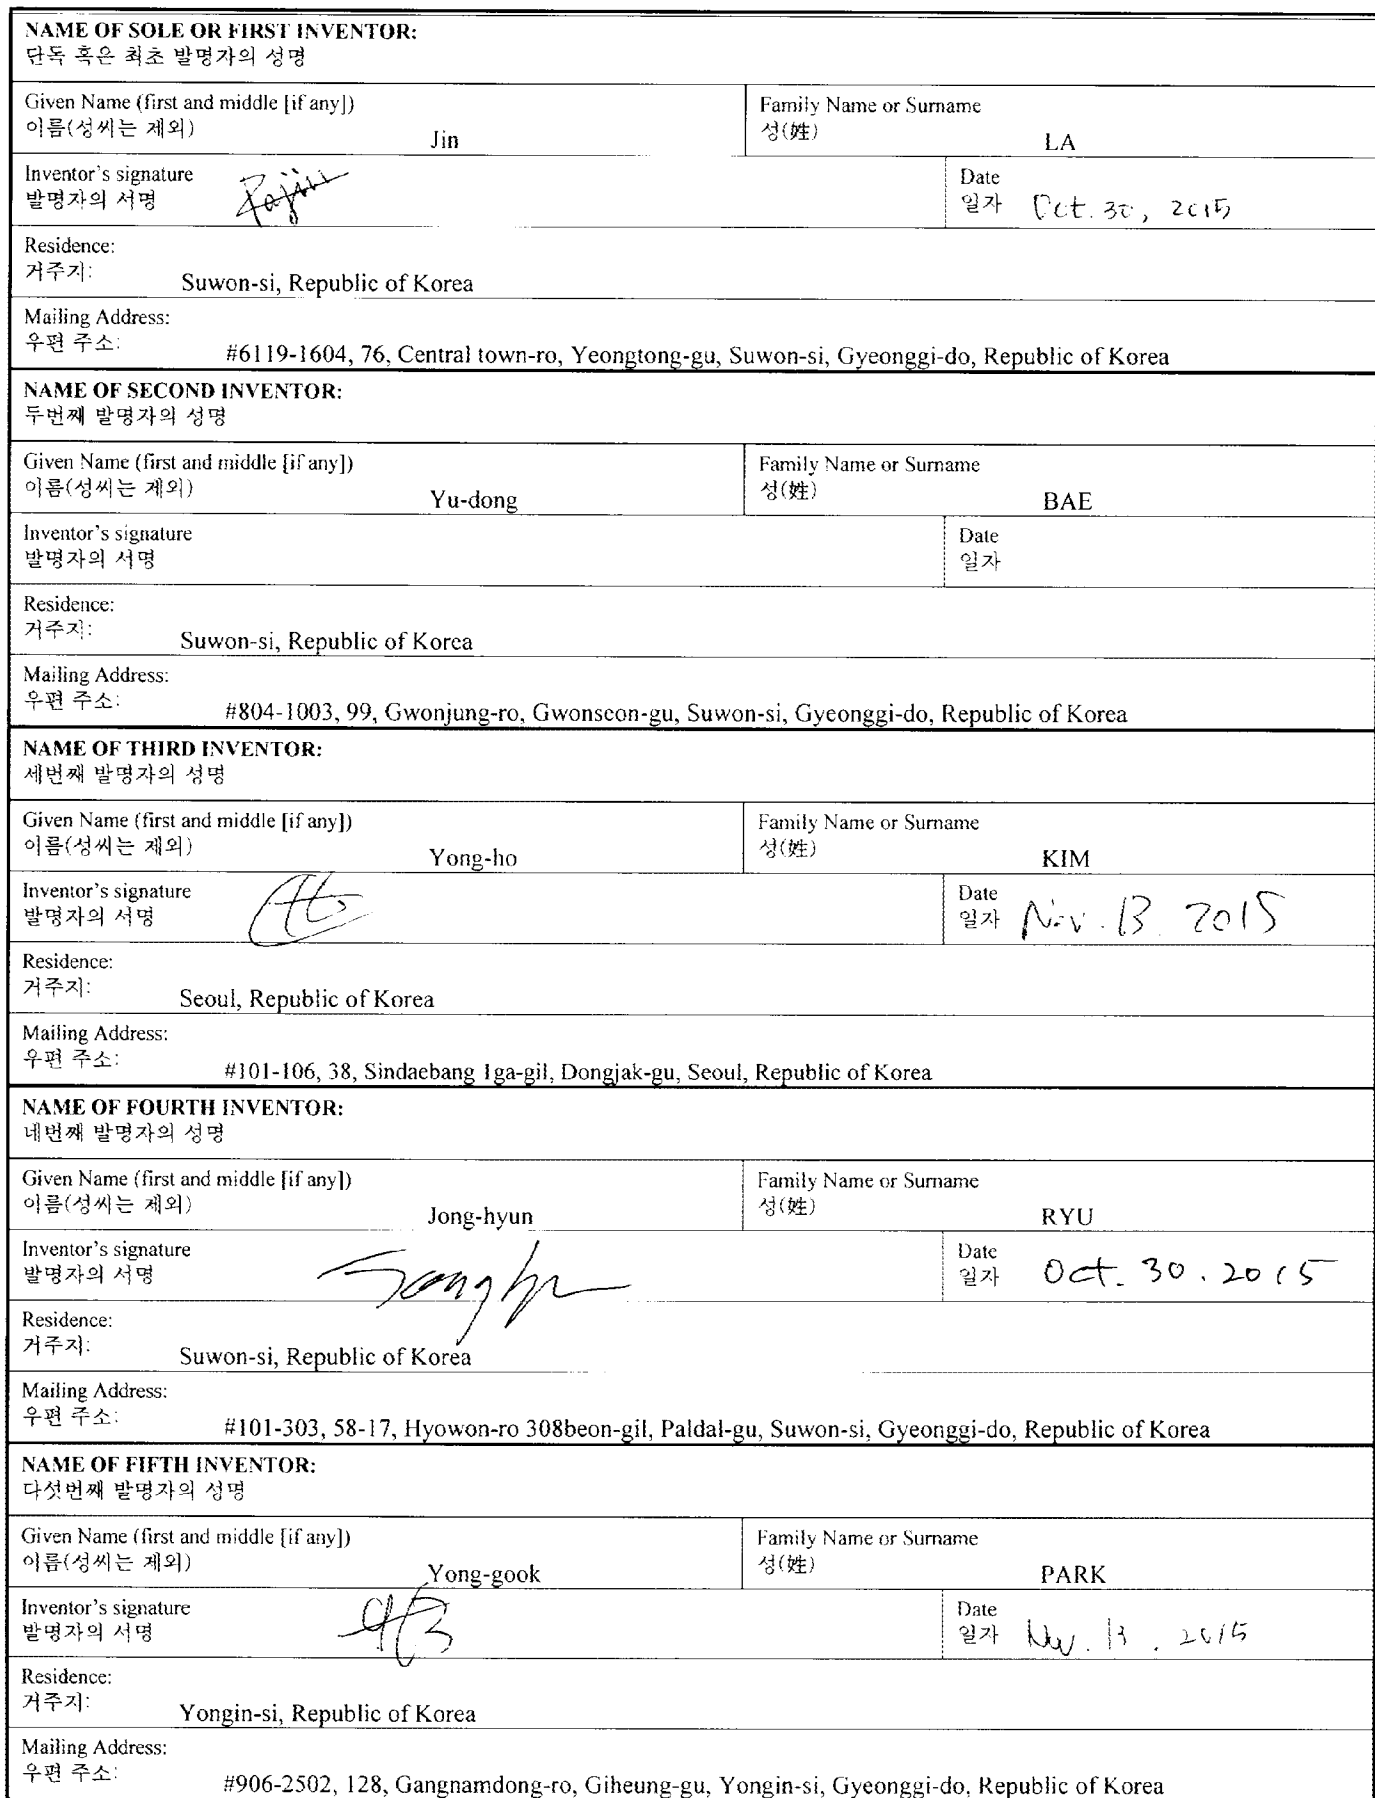 NAME OF SOLE OR FIRST INVENTOR:
단독 혹은 최초 발명자의 성명
Given Name (first and middle [if any])
이름(성씨는 제외) Jin
Family Name or Surname
성(姓) LA
Inventor's signature
발명자의 서명 Rajin
Date
일자 Oct. 30, 2015
Residence:
거주지: Suwon-si, Republic of Korea
Mailing Address:
우편 주소: #6119-1604, 76, Central town-ro, Yeongtong-gu, Suwon-si, Gyeonggi-do, Republic of Korea
NAME OF SECOND INVENTOR:
두번째 발명자의 성명
Given Name (first and middle [if any])
이름(성씨는 제외) Yu-dong
Family Name or Surname
성(姓) BAE
Inventor's signature
발명자의 서명
Date
일자
Residence:
거주지: Suwon-si, Republic of Korea
Mailing Address:
우편 주소: #804-1003, 99, Gwonjung-ro, Gwonseon-gu, Suwon-si, Gyeonggi-do, Republic of Korea
NAME OF THIRD INVENTOR:
세번째 발명자의 성명
Given Name (first and middle [if any])
이름(성씨는 제외) Yong-ho
Family Name or Surname
성(姓) KIM
Inventor's signature
발명자의 서명
Date
일자 Nov. 13. 2015
Residence:
거주지: Seoul, Republic of Korea
Mailing Address:
우편 주소: #101-106, 38, Sindaebang 1ga-gil, Dongjak-gu, Seoul, Republic of Korea
NAME OF FOURTH INVENTOR:
네번째 발명자의 성명
Given Name (first and middle [if any])
이름(성씨는 제외) Jong-hyun
Family Name or Surname
성(姓) RYU
Inventor's signature
발명자의 서명
Date
일자 Oct. 30. 2015
Residence:
거주지: Suwon-si, Republic of Korea
Mailing Address:
우편 주소: #101-303, 58-17, Hyowon-ro 308beon-gil, Paldal-gu, Suwon-si, Gyeonggi-do, Republic of Korea
NAME OF FIFTH INVENTOR:
다섯번째 발명자의 성명
Given Name (first and middle [if any])
이름(성씨는 제외) Yong-gook
Family Name or Surname
성(姓) PARK
Inventor's signature
발명자의 서명
Date
일자 Nov. 13. 2015
Residence:
거주지: Yongin-si, Republic of Korea
Mailing Address:
우편 주소: #906-2502, 128, Gangnamdong-ro, Giheung-gu, Yongin-si, Gyeonggi-do, Republic of Korea